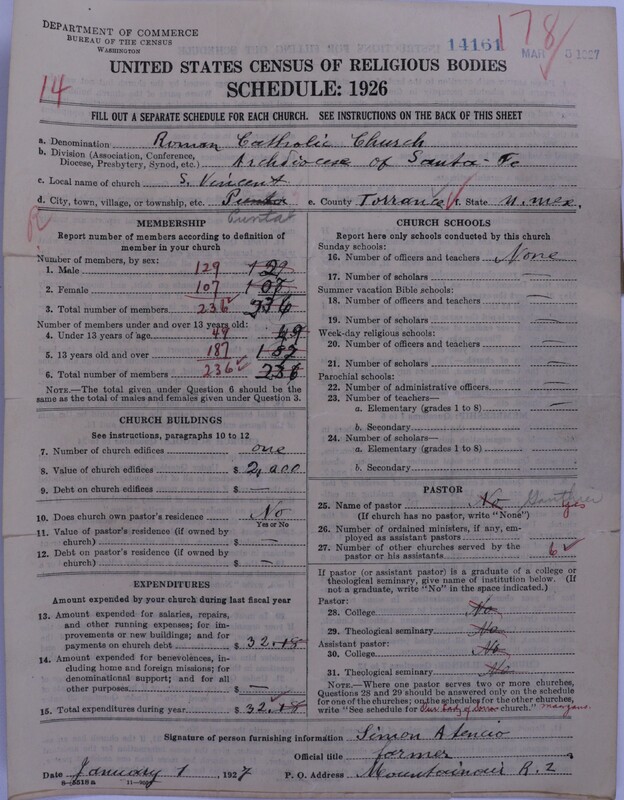 DEPARTMENT OF COMMERCE
BUREAU OF THE CENSUS
WASHINGTON
14161
178
MAR 5 1927
UNITED STATES CENSUS OF RELIGIOUS BODIES
SCHEDULE: 1926
14
FILL OUT A SEPARATE SCHEDULE FOR EACH CHURCH. SEE INSTRUCTIONS ON THE BACK OF THIS SHEET
a. Denomination Roman Catholic Church
b. Division (Association, Conference, Diocese, Presbytery, Synod, etc.) Archdiocese of Santa-Fe
c. Local name of church S. Vincent
d. City, town, village, or township, etc. Punta e. County Torrance f. State N. Mex.
R
MEMBERSHIP
Report number of members according to definition of
member in your church
Number of members, by sex:
1. Male 129 129
2. Female 107 107
3. Total number of members 236 236
Number of members under and over 13 years old:
4. Under 13 years of age 49 49
5. 13 years old and over 187 187
6. Total number of members 236 236
NOTE.—The total given under Question 6 should be
same as the total of males and females given under Question 3.
CHURCH BUILDINGS
See instructions, paragraphs 10 to 12
7. Number of church edifices one
8. Value of church edifices $ 2,000
9. Debt on church edifices $ —
10. Does church own pastor's residence No
Yes or No
11. Value of pastor's residence (if owned by
church) $ —
12. Debt on pastor's residence (if owned by
church) $ —
EXPENDITURES
Amount expended by your church during last fiscal year
13. Amount expended for salaries, repairs,
and other running expenses; for im-
provements or new buildings; and for
payments on church debt $ 32.18
14. Amount expended for benevolences, in-
cluding home and foreign missions; for
denominational support; and for all
other purposes $ —
15. Total expenditures during year $ 32.18
CHURCH SCHOOLS
Report here only schools conducted by this church
Sunday schools:
16. Number of officers and teachers None
17. Number of scholars —
Summer vacation Bible schools:
18. Number of officers and teachers —
19. Number of scholars —
Week-day religious schools:
20. Number of officers and teachers —
21. Number of scholars —
Parochial schools:
22. Number of administrative officers —
23. Number of teachers—
a. Elementary (grades 1 to 8) —
b. Secondary —
24. Number of scholars—
a. Elementary (grades 1 to 8) —
b. Secondary —
PASTOR
25. Name of pastor No Gauthier yes
(If church has no pastor, write "None")
26. Number of ordained ministers, if any, em-
ployed as assistant pastors
27. Number of other churches served by the
pastor or his assistants 6
If pastor (or assistant pastor) is a graduate of a college or
theological seminary, give name of institution below. (If
not a graduate, write "No" in the space indicated.)
Pastor:
28. College No
29. Theological seminary No
Assistant pastor:
30. College No
31. Theological seminary No
NOTE.—Where one pastor serves two or more churches,
Questions 28 and 29 should be answered only on the schedule
for one of the churches; on the schedules for the other churches,
write "See schedule for Our Lady of Sorrow church." Manzano
Signature of person furnishing information Simon Atencio
Official title farmer
Date January 1, 1927 P. O. Address Mountainair R. 2
8-5518a